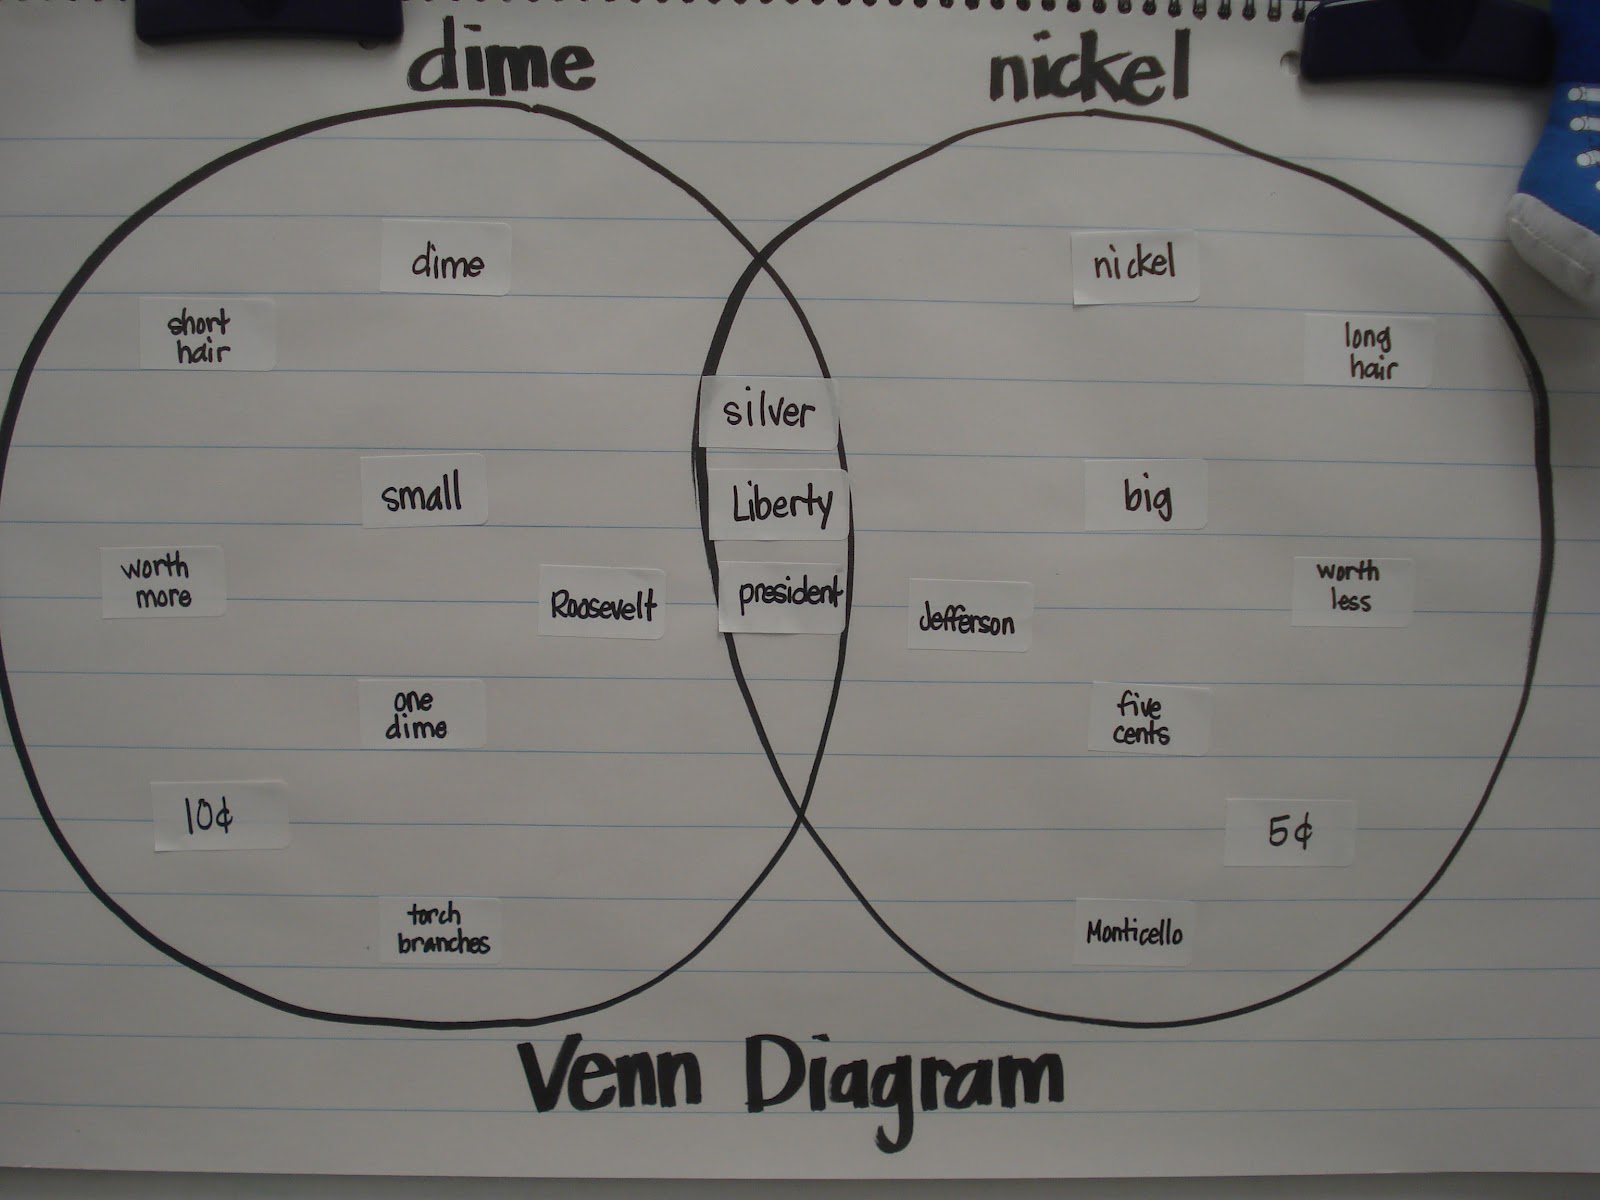 dime
nickel
dime
short
hair
small
worth
more
Roosevelt
one
dime
10¢
torch
branches
silver
Liberty
president
nickel
long
hair
big
worth
less
Jefferson
five
cents
5¢
Monticello
Venn Diagram